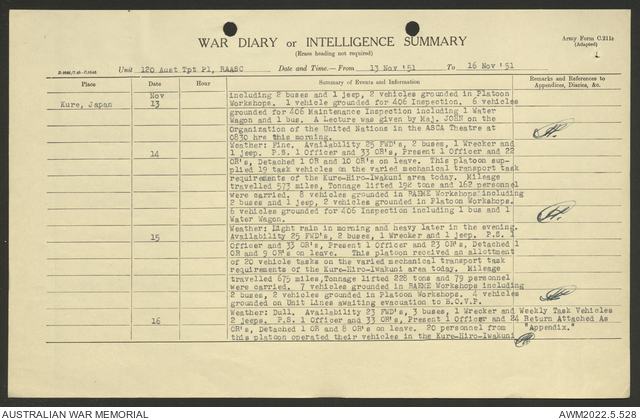 WAR DIARY or INTELLIGENCE SUMMARY
(Erase heading not required)
Army Form C.2118
(Adapted)
Unit 120 Aust Tpt Pl, RAASC Date and Time.—From 13 Nov '51 To 16 Nov '51
Place Date Hour Summary of Events and Information Remarks and References to Appendices, Diaries, &c.
Nov including 2 buses and 1 jeep, 2 vehicles grounded in Platoon
Kure, Japan 13 Workshops. 1 vehicle grounded for 406 Inspection. 6 vehicles
grounded for 406 Maintenance Inspection including 1 Water
Wagon and 1 bus. A Lecture was given by Maj. JOHN on the
Organization of the United Nations in the ASCA Theatre at
0830 hrs this morning.
Weather: Fine. Availability 25 FWD's, 2 buses, 1 Wrecker and
14 1 jeep. P.S. 1 Officer and 33 OR's, Present 1 Officer and 22
OR's, Detached 1 OR and 10 OR's on leave. This platoon sup-
plied 19 task vehicles on the varied mechanical transport task
requirements of the Kure-Hiro-Iwakuni area today. Mileage
travelled 573 miles, Tonnage lifted 192 tons and 162 personnel
were carried. 8 vehicles grounded in RAEME Workshops including
2 buses and 1 jeep, 2 vehicles grounded in Platoon Workshops.
6 vehicles grounded for 406 Inspection including 1 bus and 1
Water Wagon.
Weather: Light rain in morning and heavy later in the evening.
15 Availability 25 FWD's, 2 buses, 1 Wrecker and 1 jeep. P.S. 1
Officer and 33 OR's, Present 1 Officer and 23 OR's, Detached 1
OR and 9 OR's on leave. This platoon received an allotment
of 20 vehicle tasks on the varied mechanical transport task
requirements of the Kure-Hiro-Iwakuni area today. Mileage
travelled 675 miles, Tonnage lifted 228 tons and 79 personnel
were carried. 7 vehicles grounded in RAEME Workshops including
2 buses, 2 vehicles grounded in Platoon Workshops. 4 vehicles
grounded on Unit Lines awaiting evacuation to B.C.V.P.
Weather: Dull. Availability 23 FWD's, 3 buses, 1 Wrecker and Weekly Task Vehicles
16 2 jeeps. P.S. 1 Officer and 33 OR's, Present 1 Officer and 24 Return Attached As
OR's, Detached 1 OR and 8 OR's on leave. 20 personnel from "Appendix."
this platoon operated their vehicles in the Kure-Hiro-Iwakuni
AUSTRALIAN WAR MEMORIAL AWM2022.5.528